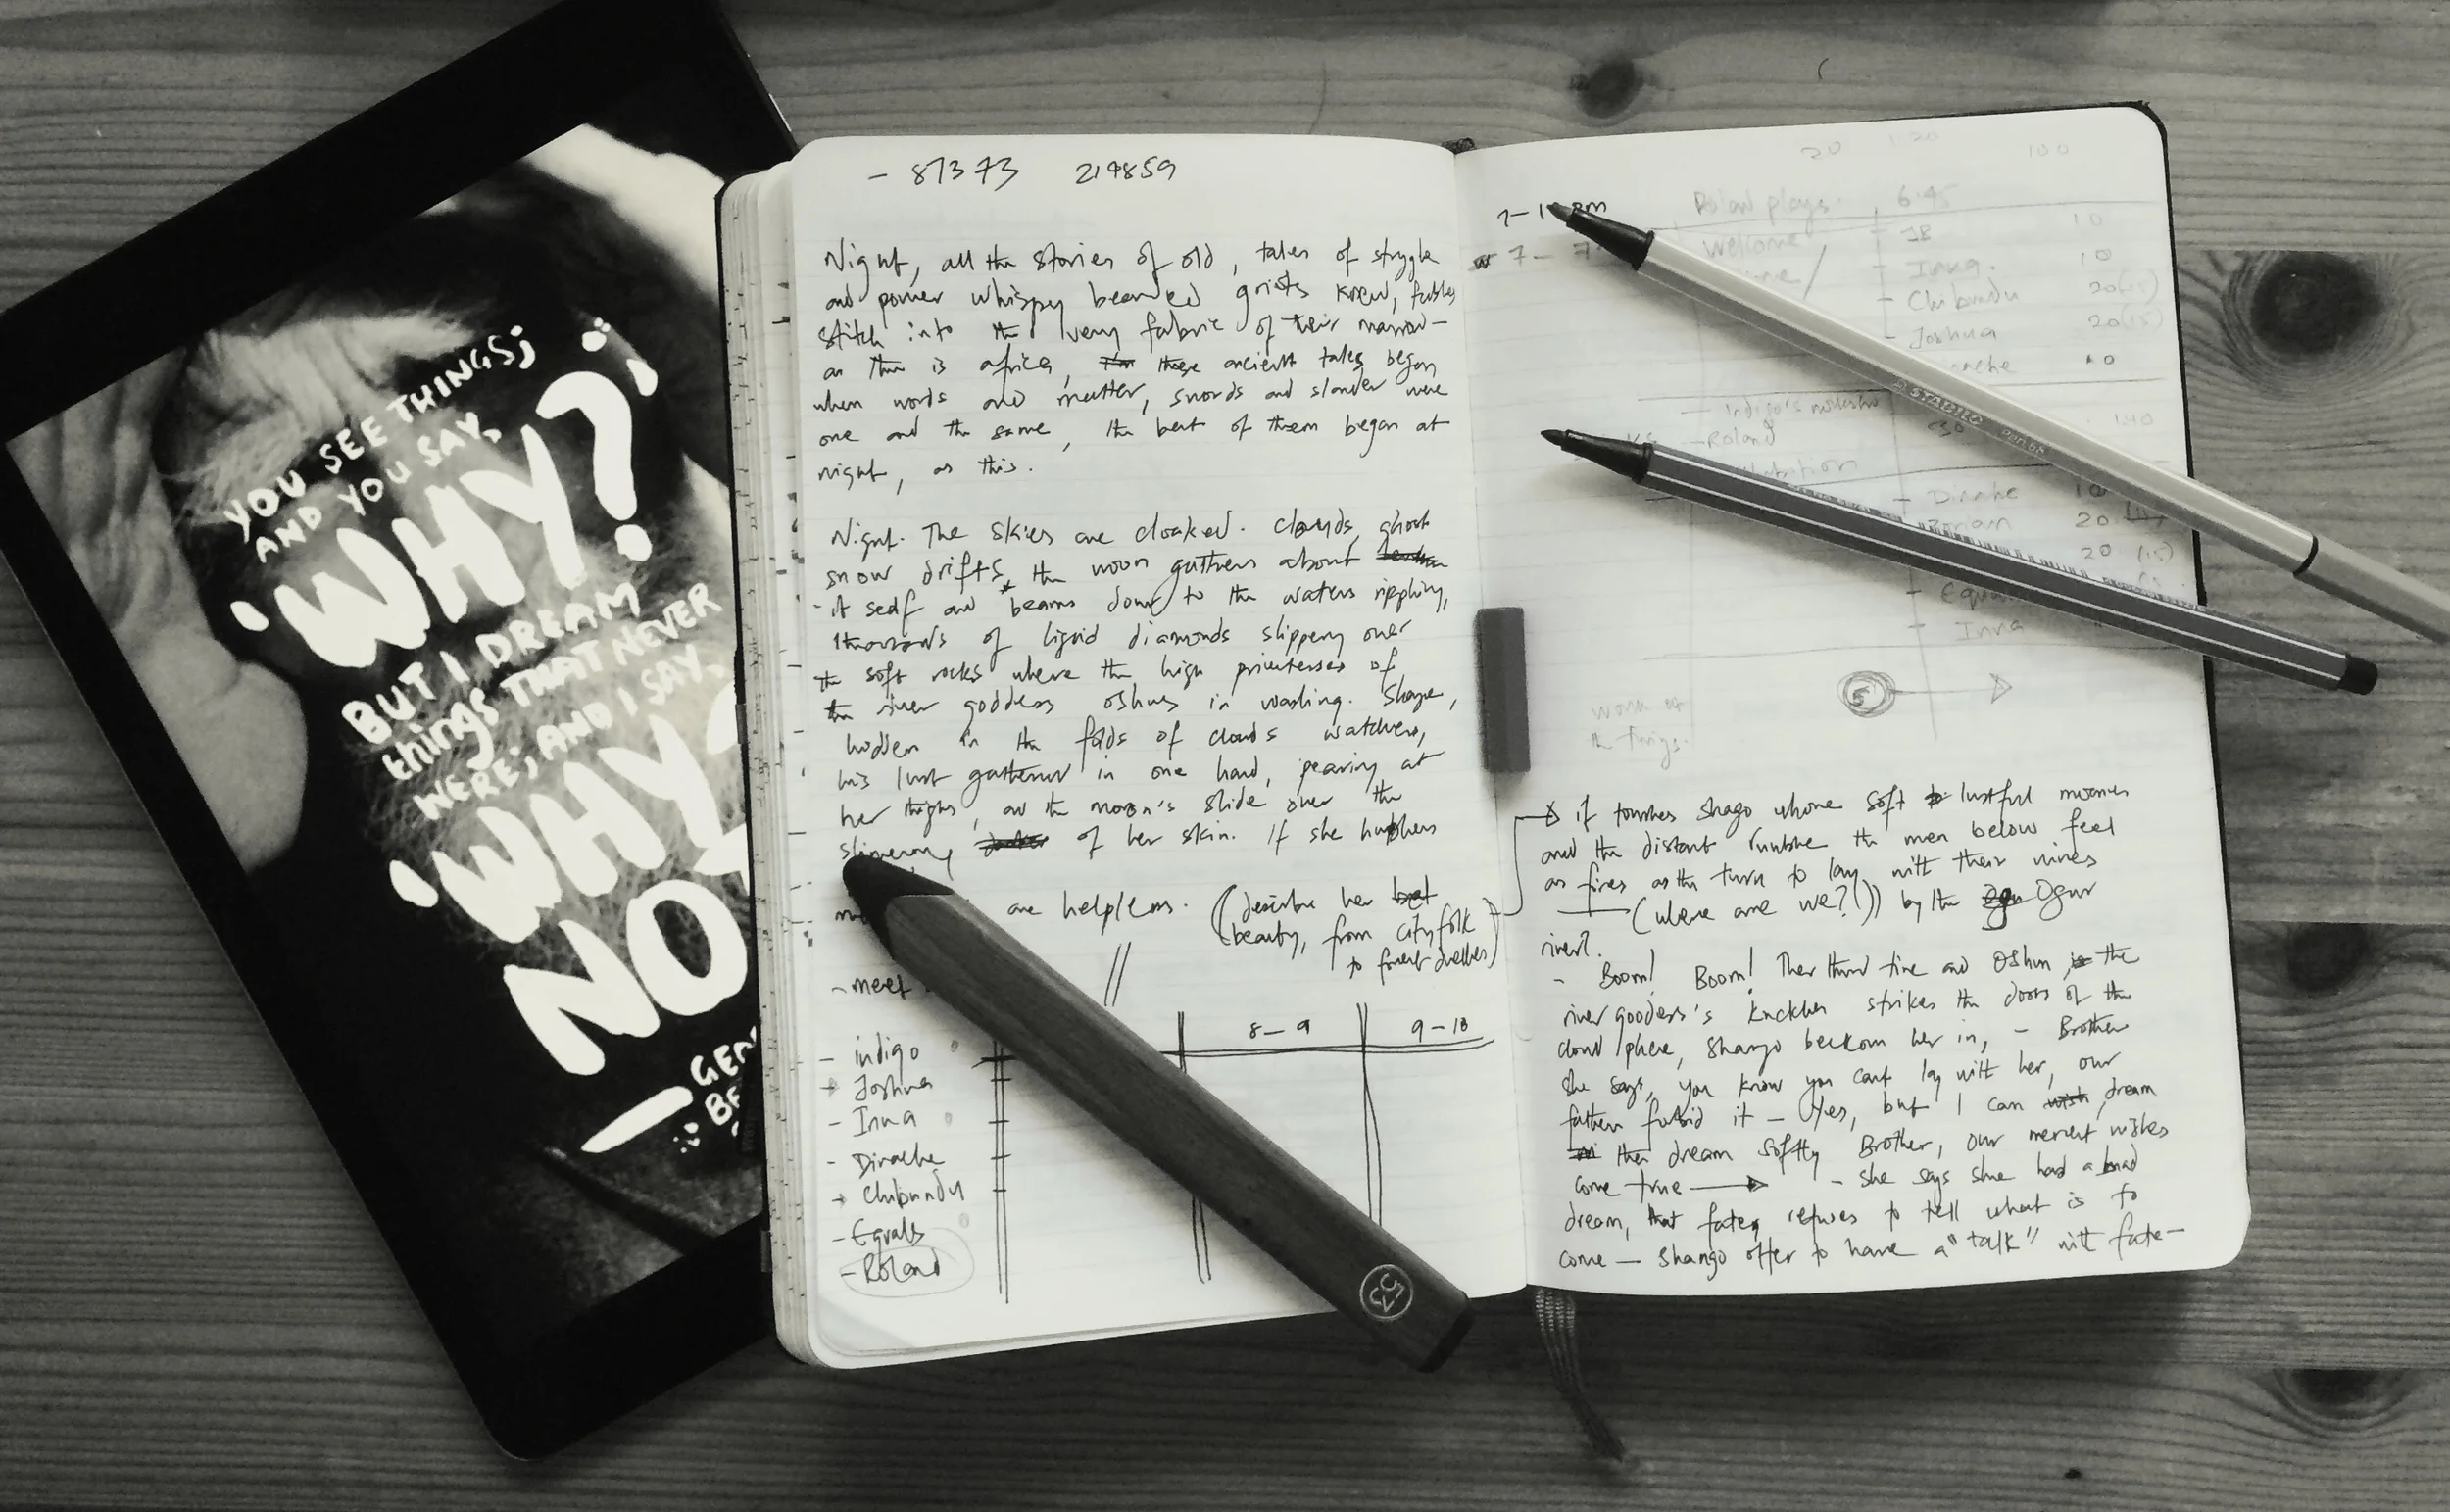 YOU SEE THINGS;
AND YOU SAY,
'WHY?'
BUT I DREAM
things THAT NEVER
WERE; AND I SAY,
'WHY
NOT
— GEO
BE
- 87373 219859
Night, all the stories of old, tales of struggle
and power whispy bearded griots knew, fables
stitch into the very fabric of their marrow-
as this is africa, these ancient tales began
when words and matter, swords and slander were
one and the same, the best of them began at
night, as this.
Night. The skies are cloaked. Clouds, ghost
snow drifts, the moon gathers about
it self and beams down to the waters rippling,
thousands of liquid diamonds slippery over
the soft rocks where the high priestesses of
the river goddess oshun is washing. Shango,
hidden in the folds of clouds watches,
his lust gathered in one hand, peering at
her thighs, as the moon's slide over the
of her skin. If she
are helpless. (describe her
beauty, from city folk
to forest dwellers)
- meet
8-9 9-10
- indigo
Joshua
- Inua
- Dirache
Chibundu
- Equals
- Roland
Roland plays. 6.45
Welcome
Inua.
- Chibundu 20(15)
- Joshua 20(15)
10
- Indigo's
- Roland
- Dirache 10
20
20 (15)
- Inua
5
it touches Shago whose soft lustful
and the distant rumble the men below feel
as fires as the turn to lay with their wives
(where are we?()) by the Ogun
river?
- Boom! Boom! Ther third time and Oshun, the
river godess's knuckles strikes the doors of the
cloud phere, Shango beckons her in, - Brother
she says, you know you cant lay with her, our
father forbid it - Yes, but I can dream
then dream softly Brother, our merest wishes
come true - she says she had a bad
dream, that fate refuses to tell what is to
come - Shango offer to have a "talk" with fate-
STABILO
pen 68
53